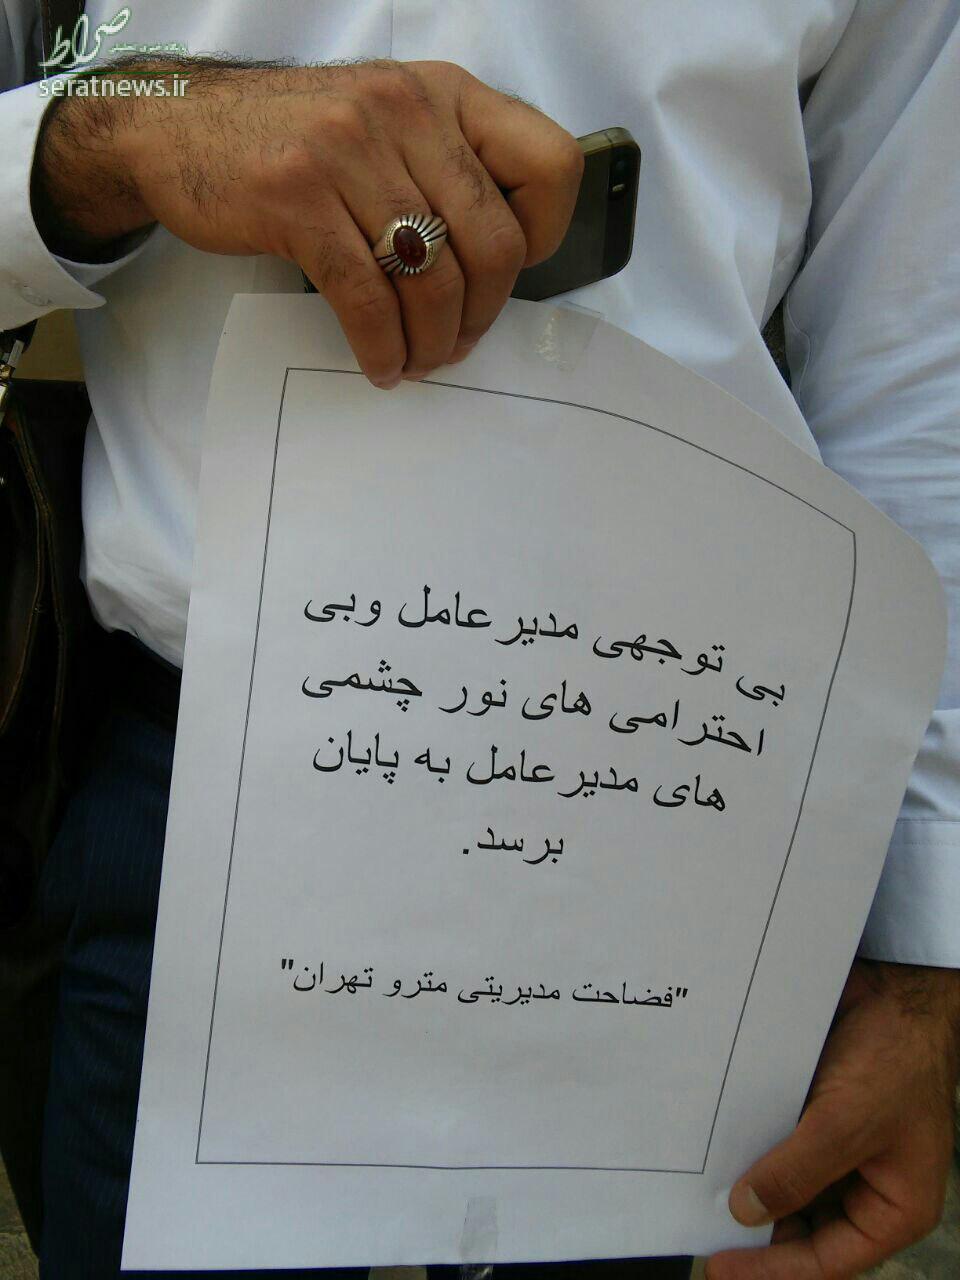 صراط
seratnews.ir
بی توجهی مدیرعامل وبی
احترامی های نور چشمی
های مدیرعامل به پایان
برسد.
"فضاحت مدیریتی مترو تهران"